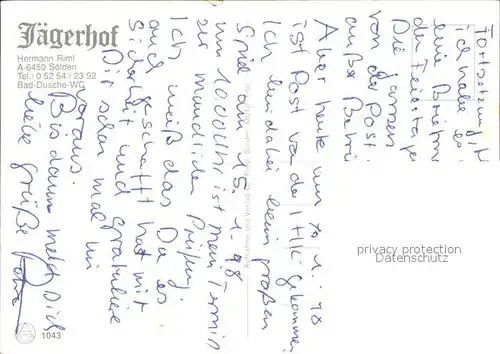 Jägerhof
Hermann Riml
A-6450 Sölden
Tel.: 0 52 54 / 23 92
Bad-Dusche-WC
1043
Fortsetzung
ich habe
eine
der Feiertage
Die ganzen
von der Post.
außer Betrie
Aber heute am 1. 98
ist Post von der IHK gekommen
Ich bin dabei beim großen
Spiel am 15. 1. 98
um 1000 Uhr ist mein Termin
zur mündlichen Prüfung.
Ich weiß das Du es
auch geschafft hat mit
Sicherheit und gratuliere
Dir schon mal im
voraus.
Bis dann meld Dich
liebe Grüße
privacy protection
watermark